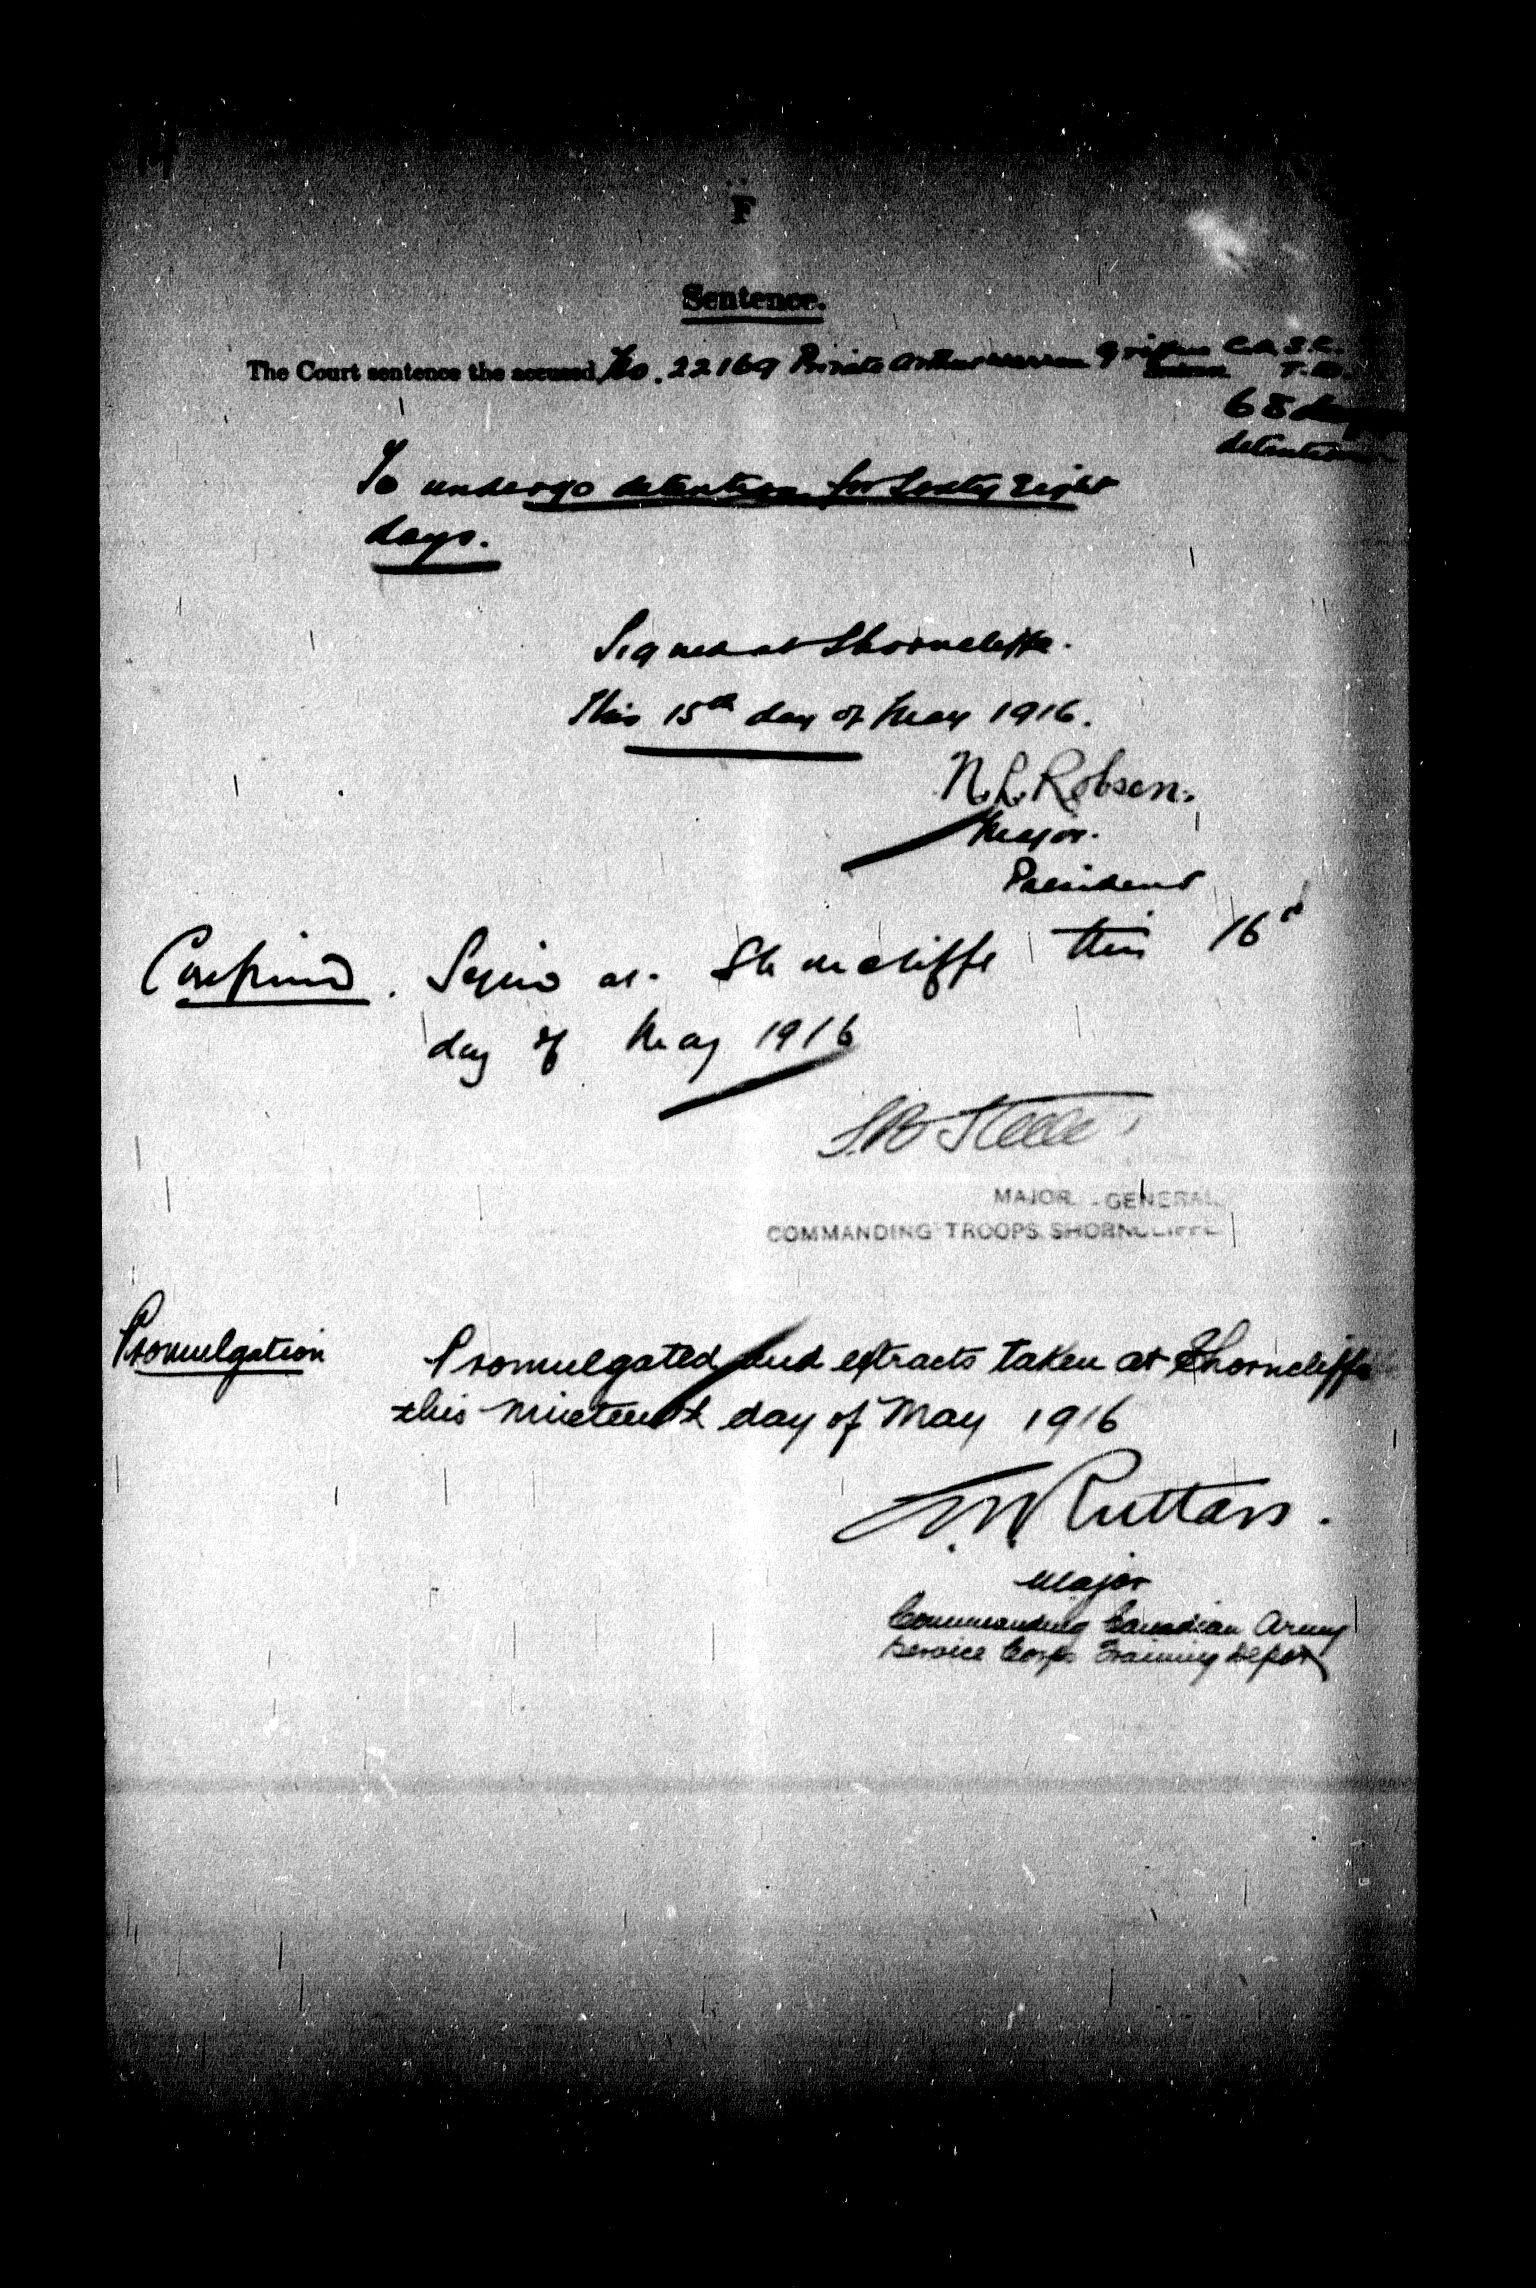 F
Sentence.
The Court sentence the accused, No. 22169 Private Arthur C.A.S.C.
T.D.
68 days
detention
To undergo detention for Sixty Eight
days.
Signed at Shorncliffe.
This 15th day of May 1916.
N. L. Robson.
Major.
President
Confirmed. Signed at Shorncliffe this 16th
day of May 1916
S B Steele
MAJOR - GENERAL
COMMANDING TROOPS. SHORNCLIFFE
Promulgation Promulgated and extracts taken at Shorncliffe
this nineteenth day of May 1916
Ruttan.
Major
Commanding Canadian Army
Service Corps Training Depot